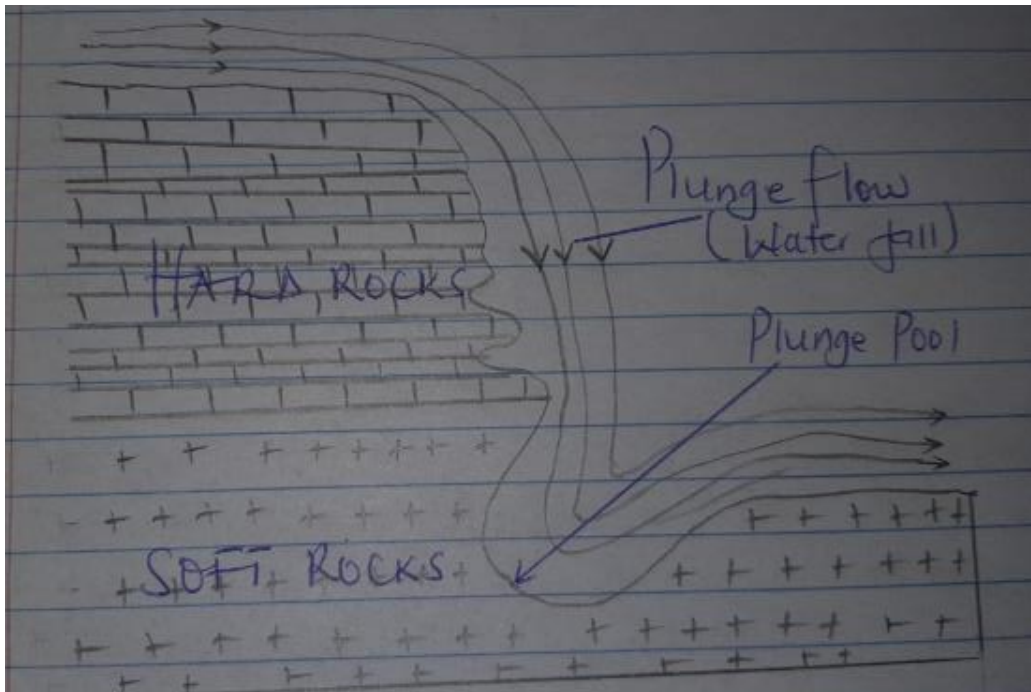 Plunge flow
(Water fall)
HARD ROCKS
Plunge Pool
SOFT ROCKS